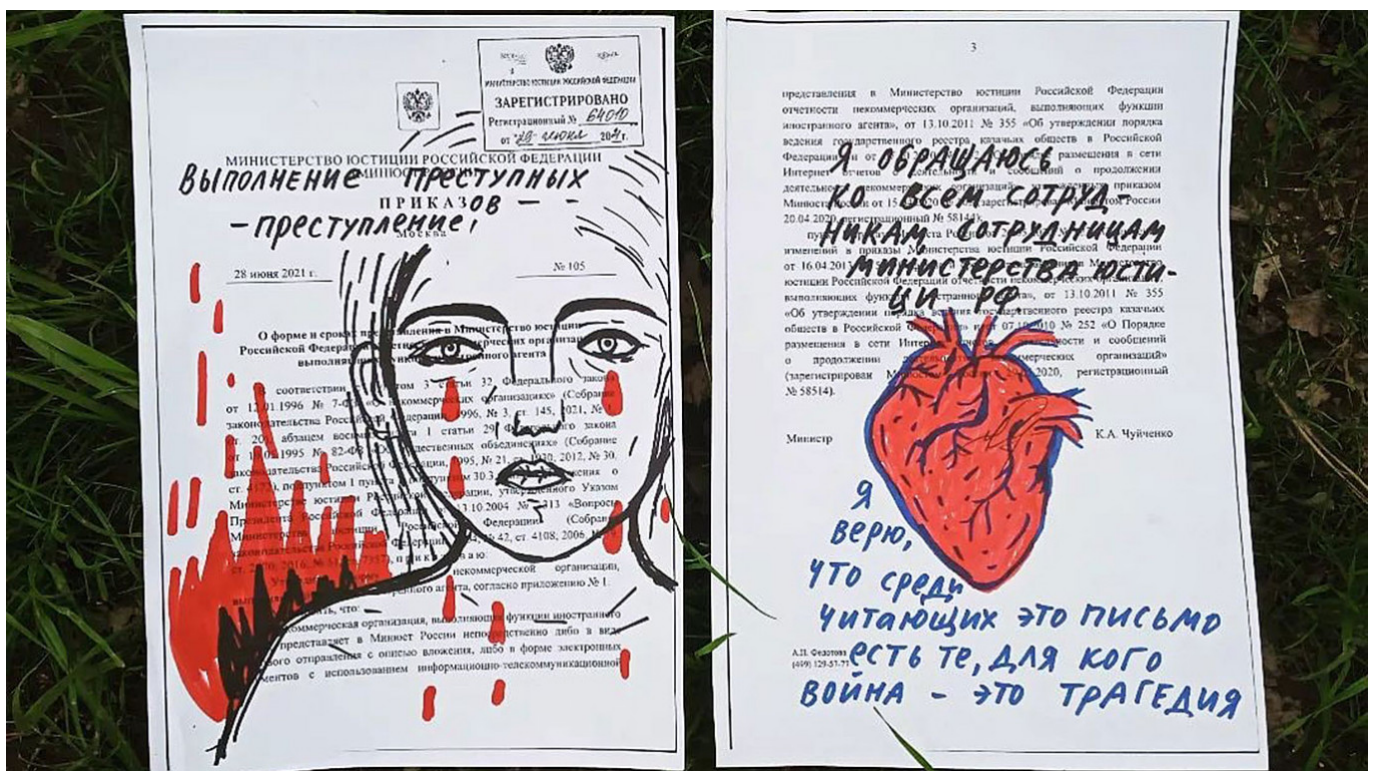 МИНИСТЕРСТВО ЮСТИЦИИ РОССИЙСКОЙ ФЕДЕРАЦИИ
ЗАРЕГИСТРИРОВАНО
Регистрационный № 64010
от "29" июня 2021 г.
МИНИСТЕРСТВО ЮСТИЦИИ РОССИЙСКОЙ ФЕДЕРАЦИИ
ВЫПОЛНЕНИЕ ПРЕСТУПНЫХ
ПРИКАЗОВ –
– ПРЕСТУПЛЕНИЕ,
Москва
28 июня 2021 г.
№ 105
О форме и сроках представления в Министерство юстиции
Российской Федерации
В соответствии 3 статьи 32 Федерального закона
от 12.01.1996 № некоммерческих организациях» (Собрание
законодательства Российской Федерации, 1996, № 3, ст. 145, 2021, №
ст. 20 абзацем 1 статьи 29 закона
от 19.05.1995 № 82-ФЗ общественных объединениях» (Собрание
законодательства Российской Федерации, 1995, № 21, ст. 1930, 2012, № 30,
ст. 4172), подпунктом 1 пункта подпунктом 30.3
Министерстве юстиции Российской Федерации, утвержденного Указом
Президента Российской Федерации 13.10.2004 № 1313 «Вопросы
Министерства юстиции Российской Федерации» (Собрание
законодательства Российской Федерации № 42, ст. 4108; 2006,
приказываю:
некоммерческой организации,
агента, согласно приложению № 1.
что:
некоммерческая организация, выполняющая функции иностранного
представляет в Минюст России непосредственно либо в виде
отправления с описью вложения, либо в форме электронных
с использованием информационно-телекоммуникационной
3
представления в Министерство юстиции Российской Федерации
отчетности некоммерческих организаций, выполняющих функции
иностранного агента», от 13.10.2011 № 355 «Об утверждении порядка
ведения государственного реестра казачьих обществ в Российской
Федерации» и от размещения в сети
Я ОБРАЩАЮСЬ
Интернет отчетов о деятельности и сообщений о продолжении
деятельности некоммерческих организаций приказом
КО ВСЕМ СОТРУД-
Минюста России от
20.04.2020, регистрационный № 58144);
НИКАМ, СОТРУДНИЦАМ
изменений в приказы Министерства юстиции Российской Федерации
от 16.04.201
МИНИСТЕРСТВА ЮСТИ-
юстиции Российской Федерации отчетности некоммерческих
выполняющих функции иностранного агента», от 13.10.2011 № 355
ЦИИ РФ
«Об утверждении порядка ведения государственного реестра казачьих
обществ в Российской и от № 252 «О Порядке
размещения в сети Интернет отчетов деятельности и сообщений
о продолжении деятельности некоммерческих организаций»
(зарегистрирован 2020, регистрационный
№ 58514).
Министр К.А. Чуйченко
Я
ВЕРЮ,
ЧТО СРЕДИ
ЧИТАЮЩИХ ЭТО ПИСЬМО
А.П. Федотова
ЕСТЬ ТЕ, ДЛЯ КОГО
(499) 129-57-77
ВОЙНА – ЭТО ТРАГЕДИЯ